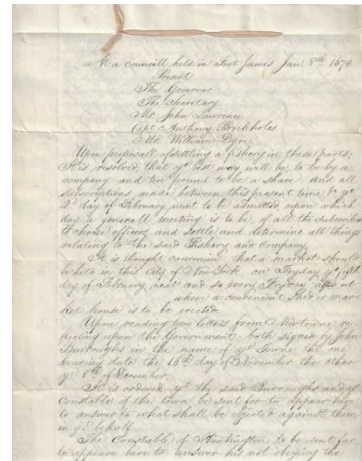 At a councill held in Fort James Jan 8th 1674
Present
The Governor
The Secretary
Mr John Lawrence
Capt Anthony Brockholes
Mr William Dyre
Upon proposall of settling a fishery in these parts,
It is resolved that ye best way will be, to be by a
company and ten pounds be a share and all
subscriptions made between this present time & ye
2d day of February next to be admitted, upon which
day a generall meeting is to be of all the subscribers
to choose officers and settle and determine all things
relating to the said Fishery and Company
It is thought convenient that a market should
be held in this City of New York on Fryday ye
day of February next and so every Fryday after at
where a convenient shed or mar
ket house is to be erected
Upon reading two letters from Newtowne re
flecting upon the Government, both signed by John
Burroughs in the name of ye towne the one
bearing date the 16th day of November the other
ye 8th of December,
It is ordered yt the said Burroughs and ye
Constable of the town be sent for to appear here
to answer to what shall be objected against them
in yt behalf
The Constable of Huntington to be sent for
to appeare here to answer his not obeying the